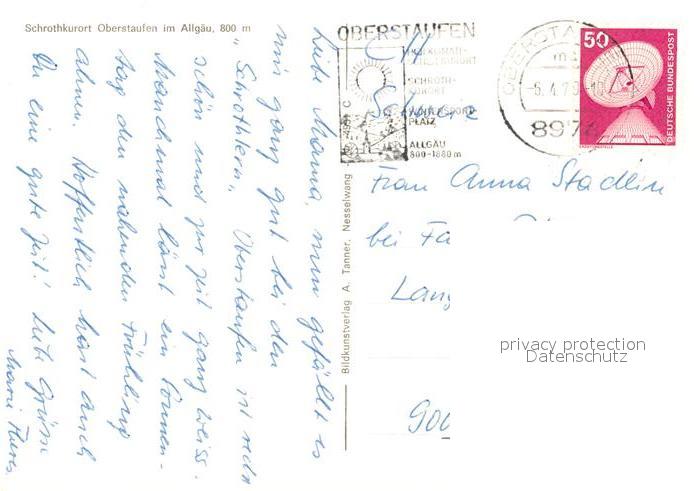 Schrothkurort Oberstaufen im Allgäu, 800 m
Liebe Mamma, nun gefällt es
mir ganz gut bei den
„Schrothlern". Oberstaufen ist sehr
schön und zur Zeit ganz weiss.
Manchmal lässt ein Sonnen-
tag den nahenden Frühling
ahnen. Hoffentlich hast auch
Du eine gute Zeit! Liebe Grüsse
Bildkunstverlag A. Tanner, Nesselwang
OBERSTAUFEN
SCHROTH-
KURORT
WINTERSPORT-
PLATZ
ALLGÄU
800-1880 m
8974
50
DEUTSCHE BUNDESPOST
CH
Schweiz
Frau Anna Stadlin
bei Fa
Lang
900
privacy protection
Datenschutz